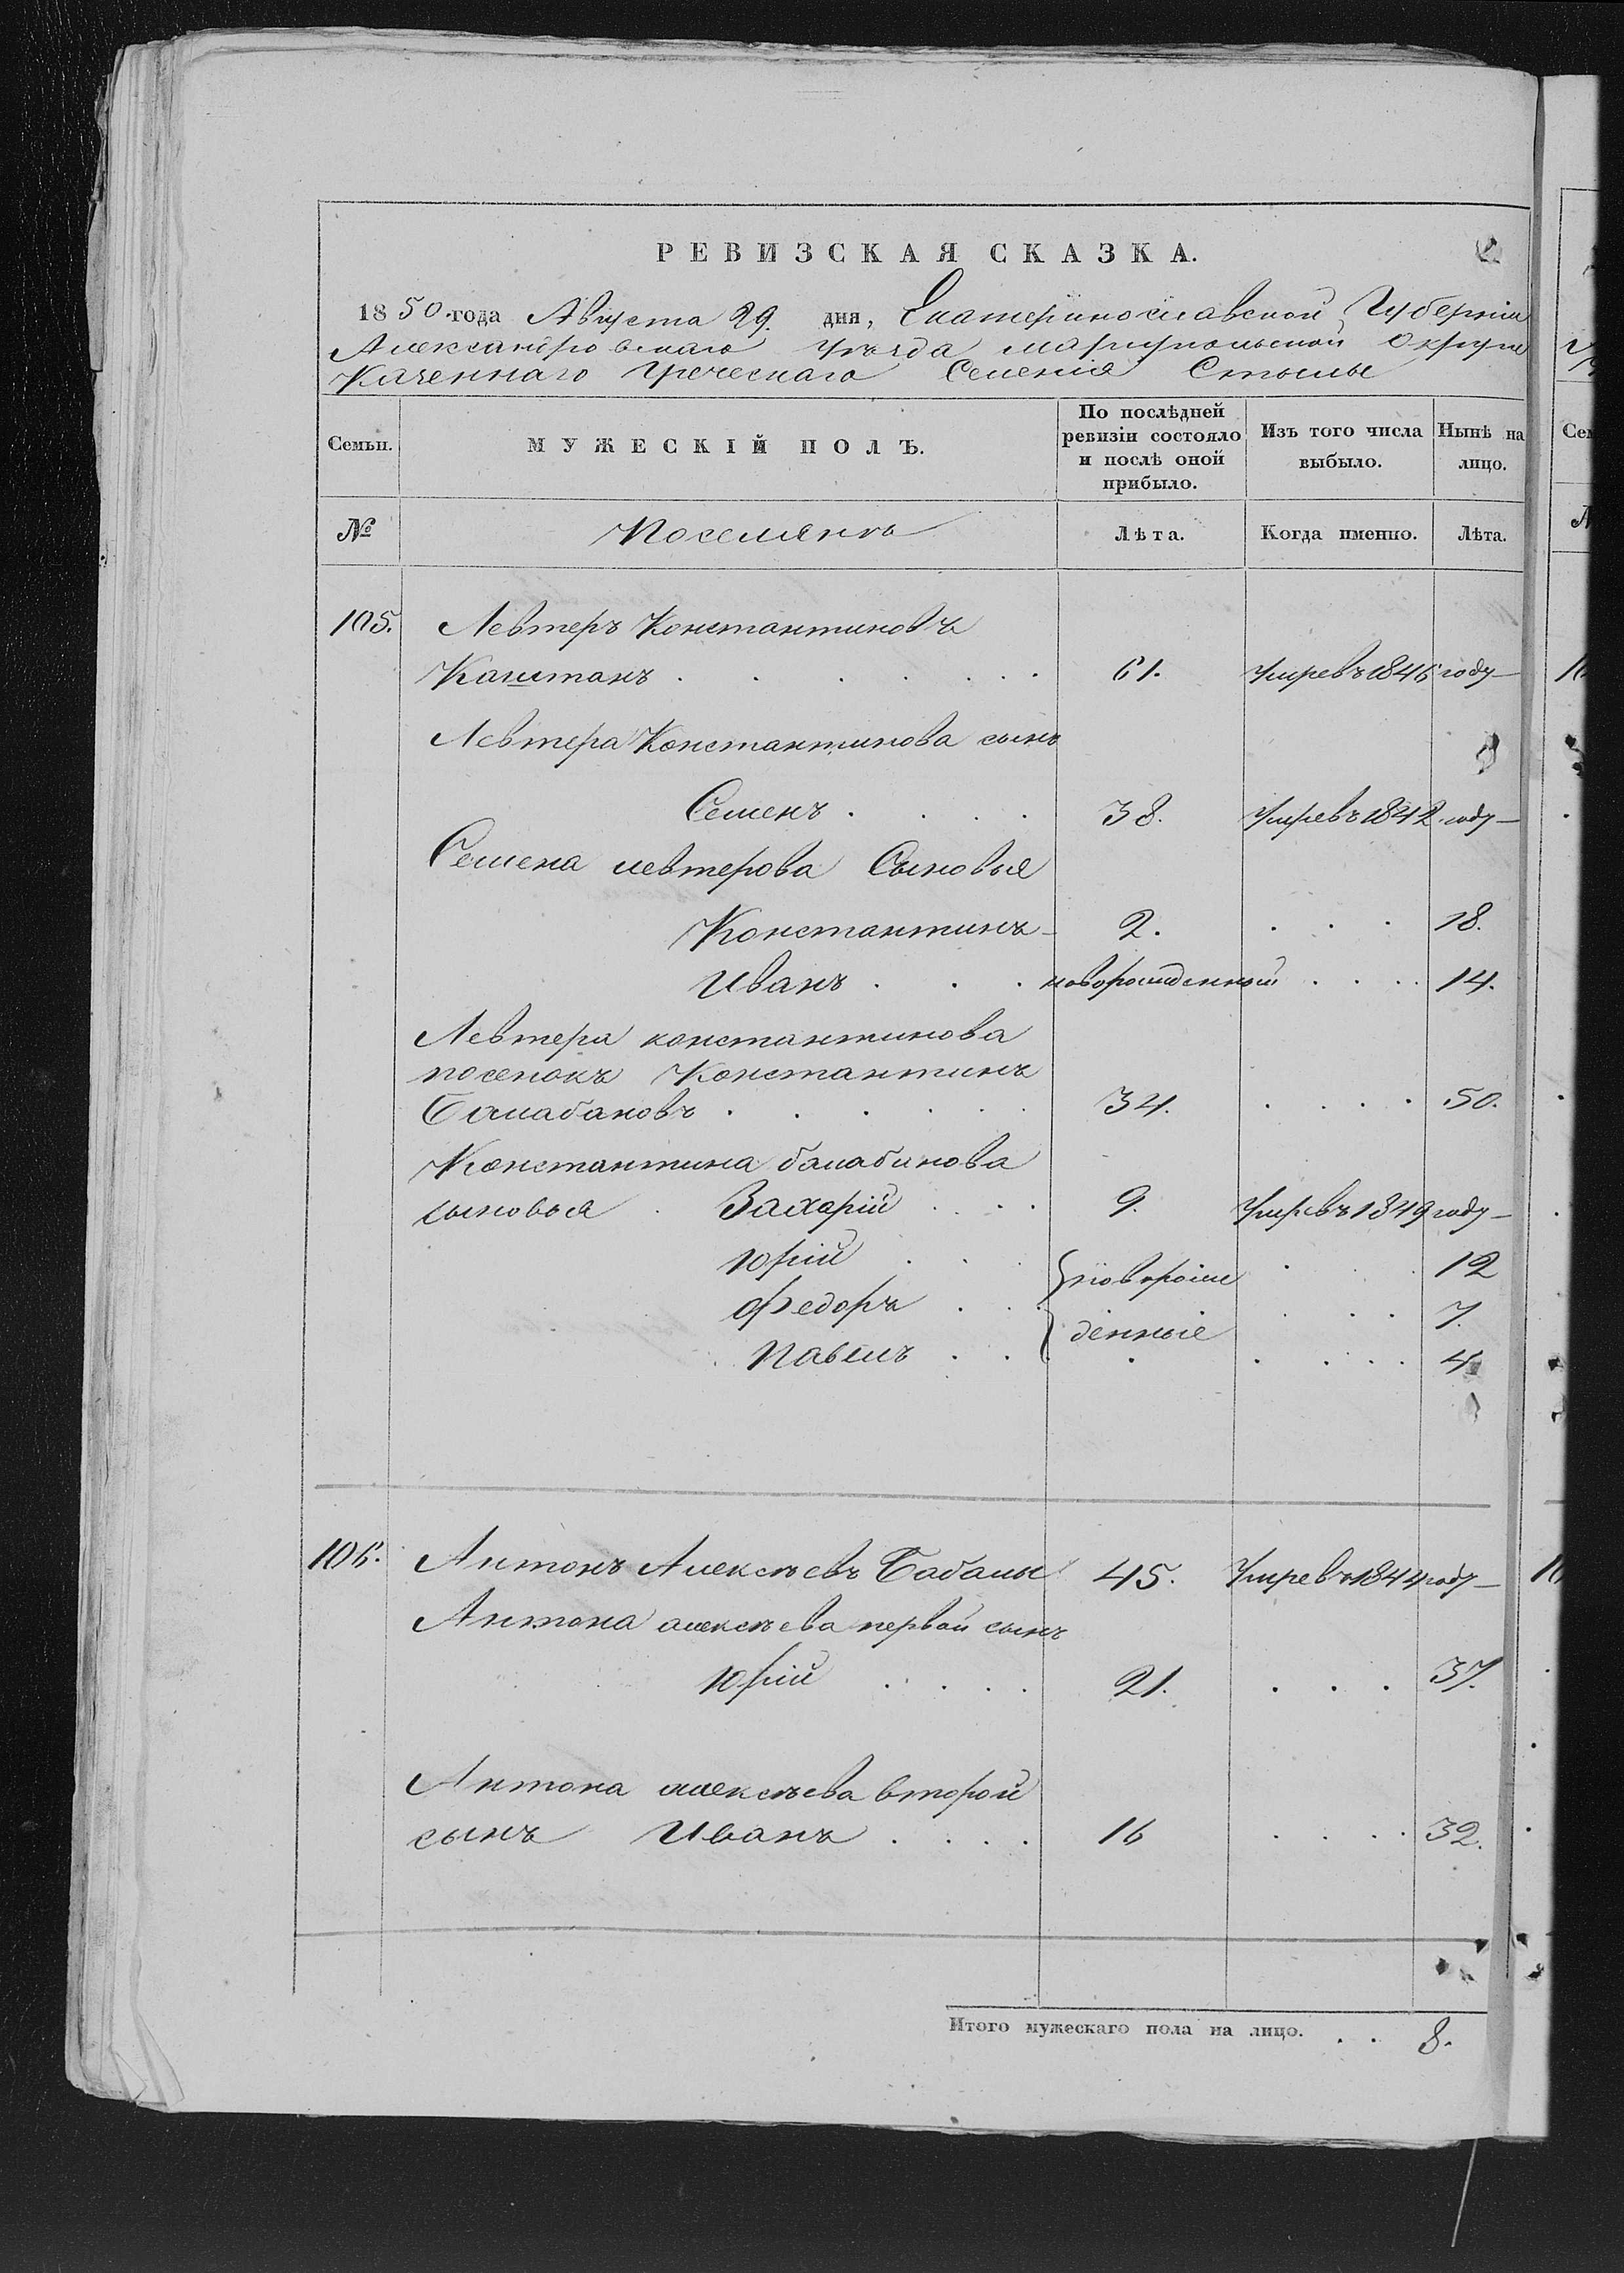 РЕВИЗСКАЯ СКАЗКА.
1850 года Августа 29. дня, Екатеринославской Губерніи
Александровскаго Уѣзда Мариупольской Округи
Казеннаго Греческаго Селенія Стылы
Семьи.
МУЖЕСКІЙ ПОЛЪ.
По послѣдней ревизіи состояло и послѣ оной прибыло.
Изъ того числа выбыло.
Нынѣ на лицо.
№
Поселянъ
Лѣта.
Когда именно.
Лѣта.
105. Левтеръ Константиновъ
Каштанъ . . . . . . . 61. Умре въ 1846 году
Левтера Константинова сынъ
Семенъ . . . . 38. Умре въ 1842 году
Семена левтерова Сыновья
Константинъ 2. . . . 18.
Иванъ . . . новорожденный . . . . 14.
Левтера константинова
посенокъ Константинъ
Балабановъ . . . . . . 34. . . . . 50.
Константина балабанова
сыновья . Захарій . . . . 9. Умре въ 1849 году
Юрій . . . новорож . . . 12
Федоръ . . . денные . . . 7.
Павелъ . . . . . . . . 4
106. Антонъ Алексѣевъ Бабалы 45. Умре въ 1844 году
Антона алексѣева первой сынъ
Юрій . . . . 21. . . . 37.
Антона алексѣева второй
сынъ Иванъ . . . . 16 . . . . 32.
Итого мужескаго пола на лицо. . . 8.